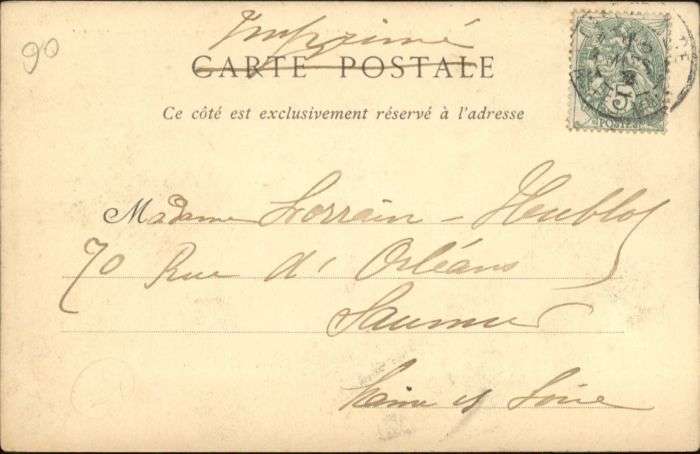 90
Imprimé
CARTE POSTALE
Ce côté est exclusivement réservé à l'adresse
Madame Lorrain - Heublot
70 Rue d'Orléans
Saumur
Maine et Loire
5